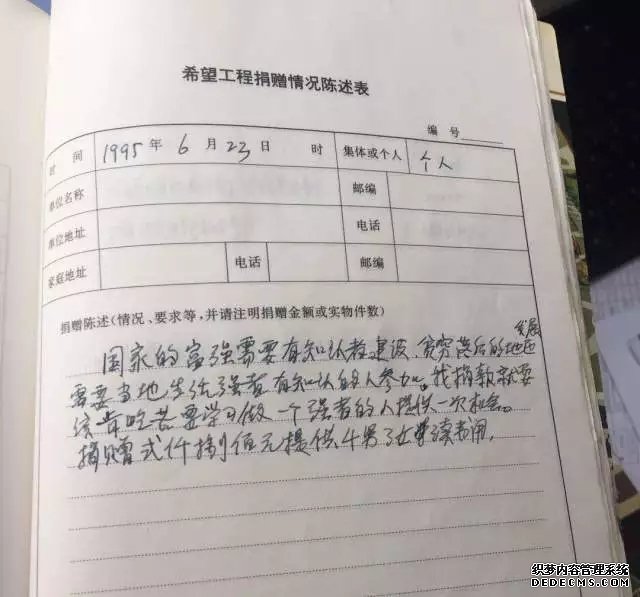 希望工程捐赠情况陈述表
编 号
时 间 1995 年 6 月 23 日 时 集体或个人 个人
单位名称 邮编
单位地址 电话
家庭地址 电话 邮编
捐赠陈述(情况、要求等,并请注明捐赠金额或实物件数)
发展
国家的富强需要有知认者建设、贫穷落后的地区
需要当地生活强者有知认的人参加。我捐款就要
给肯吃苦要学习做一个强者的人提供一次机会。
捐赠弍仟捌佰元提供4男 女 读书用,
织梦内容管理系统
DEDECMS.COM